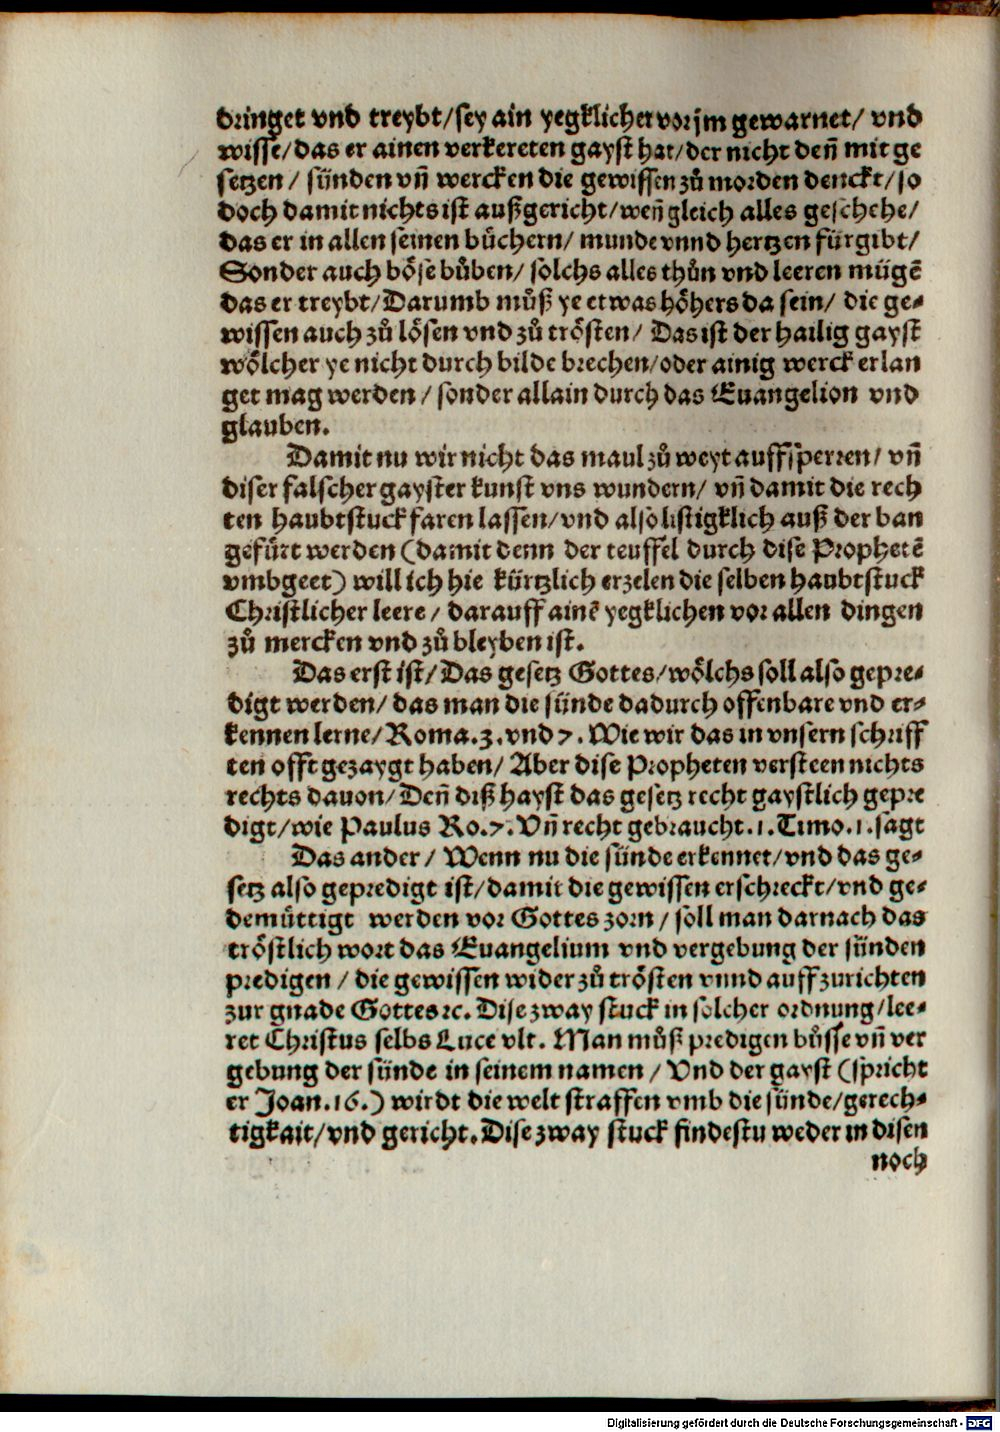 dringet vnd treybt/ sey ain yegklicher vor jm gewarnet/ vnd
wisse/ das er ainen verkereten gayst hat/ der nicht deñ mit ge
setzen/ sünden vñ wercken die gewissen zů morden denckt/ so
doch damit nichts ist außgericht/ weñ gleich alles geschehe/
das er in allen seinen bůchern/ munde vnnd hertzen fürgibt/
Sonder auch böse bůben/ solchs alles thůn vnd leeren mügẽ
das er treybt/ Darumb můß ye etwas höhers da sein/ die ge⸗
wissen auch zů lösen vnd zů trösten/ Das ist der hailig gayst
wölcher ye nicht durch bilde brechen/ oder ainig werck erlan
get mag werden/ sonder allain durch das Euangelion vnd
glauben.
Damit nu wir nicht das maul zů weyt auffsperren/ vñ
diser falscher gayster kunst vns wundern/ vñ damit die rech
ten haubtstuck faren lassen/ vnd also listigklich auß der ban
gefürt werden (damit denn der teuffel durch dise Prophetẽ
vmbgeet) will ich hie kürtzlich erzelen die selben haubtstuck
Christlicher leere/ darauff ainẽ yegklichen vor allen dingen
zů mercken vnd zů bleyben ist.
Das erst ist/ Das gesetz Gottes/ wölchs soll also gepre⸗
digt werden/ das man die sünde dadurch offenbare vnd er⸗
kennen lerne/ Roma.3.vnd 7. Wie wir das in vnsern schriff
ten offt gezaygt haben/ Aber dise Propheten versteen nichts
rechts dauon/ Deñ diß hayst das gesetz recht gaystlich gepre
digt/ wie Paulus Ro.7. Vñ recht gebraucht.1.Timo.1.sagt
Das ander/ Wenn nu die sünde erkennet/ vnd das ge⸗
setz also gepredigt ist/ damit die gewissen erschreckt/ vnd ge⸗
demüttigt werden vor Gottes zorn/ soll man darnach das
tröstlich wort das Euangelium vnd vergebung der sünden
predigen/ die gewissen wider zů trösten vnnd auffzurichten
zur gnade Gottes ꝛc. Dise zway stuck in solcher ordnung/ lee⸗
ret Christus selbs Luce vlt. Man můß predigen bůsse vñ ver
gebung der sünde in seinem namen/ Vnd der gayst (spricht
er Joan.16.) wirdt die welt straffen vmb die sünde/ gerech⸗
tigkait/ vnd gericht. Dise zway stuck findestu weder in disen
noch
Digitalisierung gefördert durch die Deutsche Forschungsgemeinschaft - DFG